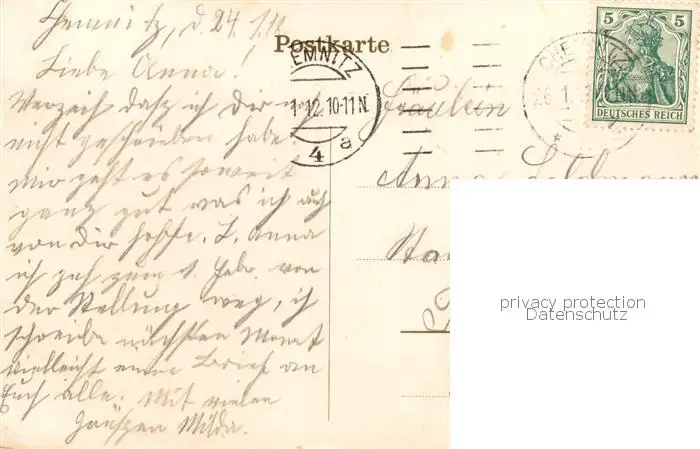 Chemnitz, d. 24. 1. 12
Postkarte
Liebe Anna!
Verzeih dasz ich dir noch
nicht geschrieben habe.
Mir geht es soweit
ganz gut was ich auch
von dir hoffe. L. Anna
ich geh zum 1. Febr. von
der Stellung weg, ich
schreibe nächsten Monat
vielleicht einen Brief an
Euch alle. Mit vielen
Grüszen Milda.
EMNITZ
1.12.10-11N.
4 a
CHE
26.1
5 5
DEUTSCHES REICH
Fräulein
Anna
privacy protection
Datenschutz